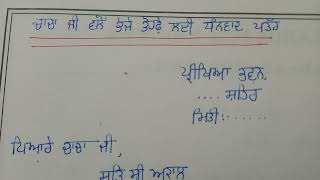 ਚਾਚਾ ਜੀ ਵਲੋਂ ਭੇਜੇ ਤੋਹਫ਼ੇ ਲਈ ਧੰਨਵਾਦ ਪੱਤਰ
ਪ੍ਰੀਖਿਆ ਭਵਨ,
.... ਸ਼ਹਿਰ
ਮਿਤੀ:......
ਪਿਆਰੇ ਚਾਚਾ ਜੀ,
ਸਤਿ ਸ੍ਰੀ ਅਕਾਲ